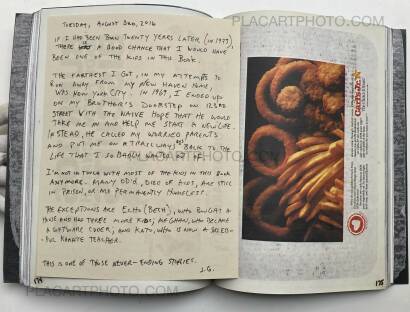 WWW.PLACARTPHOTO.COM
TUESDAY, AUGUST 3RD, 2016
IF I HAD BEEN BORN TWENTY YEARS LATER (IN 1973),
THERE A GOOD CHANCE THAT I WOULD HAVE
BEEN ONE OF THE KIDS IN THIS BOOK.
THE FARTHEST I GOT, IN MY ATTEMPTS TO
RUN AWAY FROM MY NEW HAVEN HOME,
WAS NEW YORK CITY. IN 1969, I ENDED UP
ON MY BROTHER'S DOORSTEP ON 123RD
STREET WITH THE NAIVE HOPE THAT HE WOULD
TAKE ME IN AND HELP ME START A NEW LIFE.
INSTEAD, HE CALLED MY WORRIED PARENTS
AND PUT ME ON A TRAILWAYS BUS BACK TO THE
LIFE THAT I SO BADLY WANTED OUT OF.
I'M NOT IN TOUCH WITH MOST OF THE KIDS IN THIS BOOK
ANYMORE. MANY OD'D, DIED OF AIDS, ARE STILL
IN PRISON, OR ARE PERMANENTLY HOMELESS.
THE EXCEPTIONS ARE ECHO (BETH), WHO BOUGHT A
HOUSE AND HAD THREE MORE KIDS; MEGHAN, WHO BECAME
A SOFTWARE CODER; AND KATO, WHO IS NOW A SUCCESS-
FUL KARATE TEACHER.
THIS IS ONE OF THOSE NEVER-ENDING STORIES.
J.G.
Carl's Jr.
174
175
WWW.PLACARTPHOTO.COM